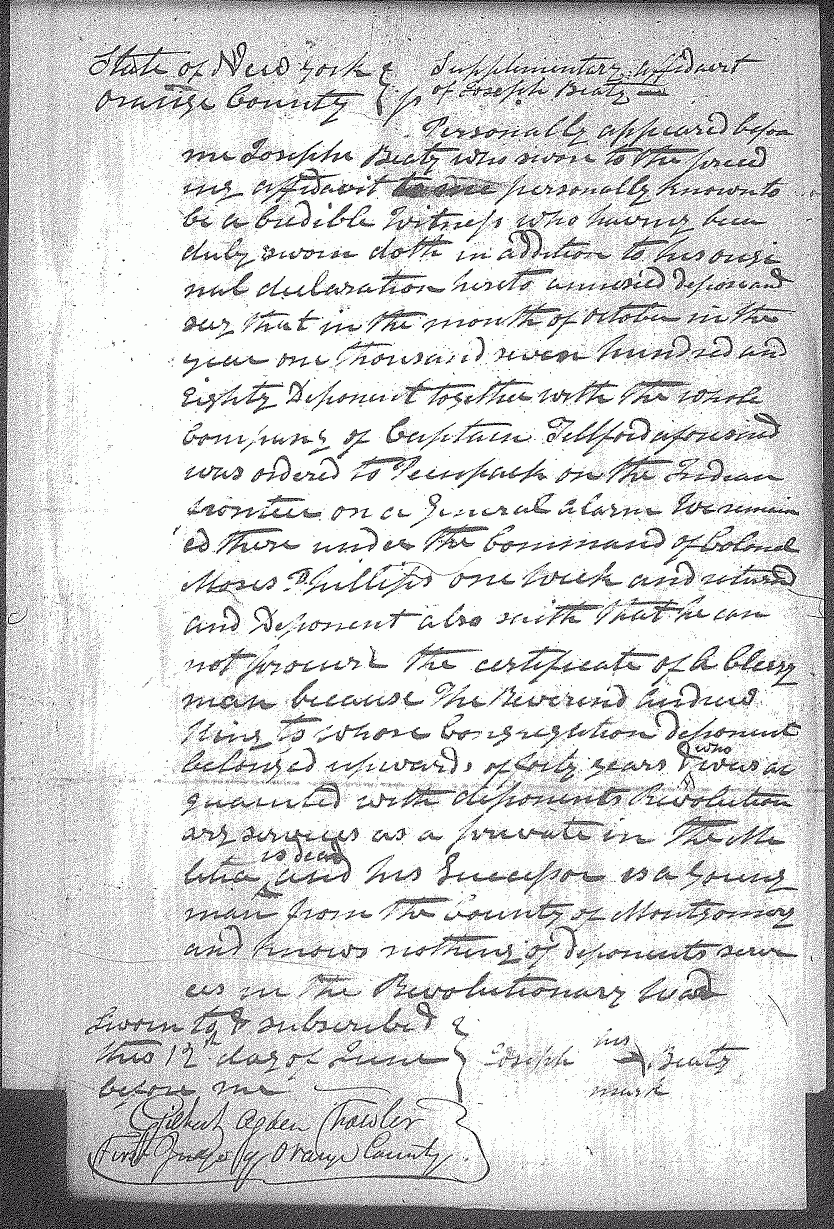 State of New York } Supplementary affidavit
Orange County } ss of Joseph Beaty
Personally appeared before
me Joseph Beaty who swore to the preced
ing affidavit to me personally known to
be a Credible Witness who having been
duly sworn doth in addition to his origi
nal declaration hereto annexed depose and
say that in the month of October in the
year one thousand seven hundred and
Eighty Deponent together with the whole
Company of Captain Tillford aforesaid
was ordered to Peenpack on the Indian
frontier on a General alarm We remain
ed there under the Command of Colonel
Moses Phillips one week and returned
and Deponent also saith that he can
not procure the certificate of A Clergy
man because The Reverend Andrew
King to whose Congregation deponent
belonged upwards of forty years & who was ac
quainted with deponents Revolution
ary services as a private in the Mi
litia is dead and his Successor is a Young
man from the County of Montgomery
and knows nothing of deponents servi
ces in the Revolutionary War
Sworn to & subscribed
this 12th day of June
before me
Joseph his mark Beaty
Gilbert Ogden Fowler
First Judge of Orange County